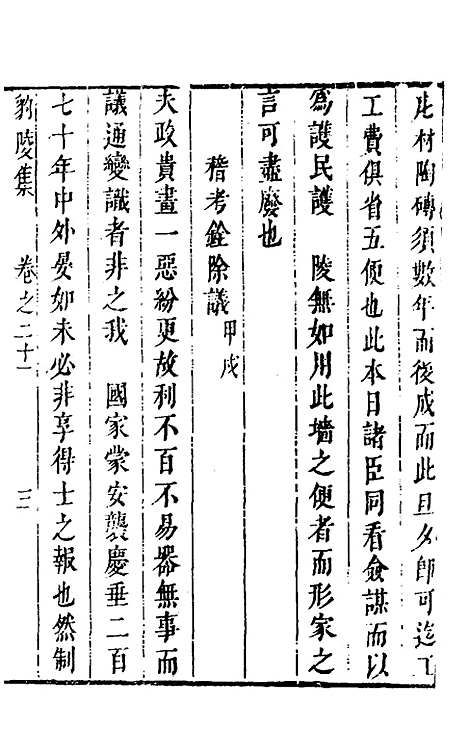 庀材陶磚須數年而後成而此旦夕即可迄工
工費俱省五便也此本日諸臣同看僉謀而以
為護民護　陵無如用此墻之便者而形家之
言可盡廢也
稽考銓除議甲戌
夫政貴畫一惡紛更故利不百不易器無事而
議通變識者非之我　國家蒙安襲慶垂二百
七十年中外晏如未必非享得士之報也然制
豹陵集　卷之二十一　三